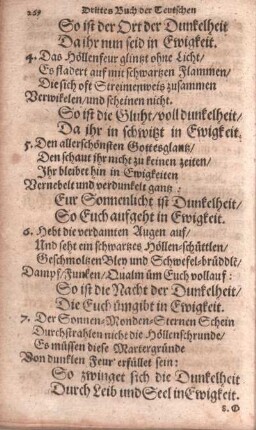 269 Drittes Buch der Teutschen
So ist der Ort der Dunkelheit
Da ihr nun seid in Ewigkeit.
4. Das Höllenfeur glintzt ohne Licht/
Es fladert auf mit schwartzen Flammen/
Die sich oft Streimenweis zusammen
Verwikelen/und scheinen nicht.
So ist die Gluht/voll dunkelheit/
Da ihr in schwitzt in Ewigkeit.
5. Den allerschönsten Gottesglantz/
Den schaut ihr nicht zu keinen zeiten/
Ihr bleibet hin in Ewigkeiten
Vernebelt und verdunkelt gantz:
Eur Sonnenlicht ist Dunkelheit/
So Euch aufgeht in Ewigkeit.
6. Hebt die verdamten Augen auf/
Und seht ein schwartzes Höllen-schüttlen/
Geschmoltzen Bley und Schwefel-brüddlē/
Dampf/Funken/Qualm üm Euch vollauf:
So ist die Nacht der Dunkelheit/
Die Euch ümgibt in Ewigkeit.
7. Der Sonnen-Monden-Sternen Schein
Durchstrahlen nicht die Höllenschrunde/
Es müssen diese Martergründe
Von dunklen Feur erfüllet sein:
So zwinget sich die Dunkelheit
Durch Leib und Seel in Ewigkeit.